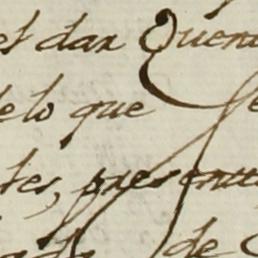 el dar Quent
delo que se
tes, presente
de